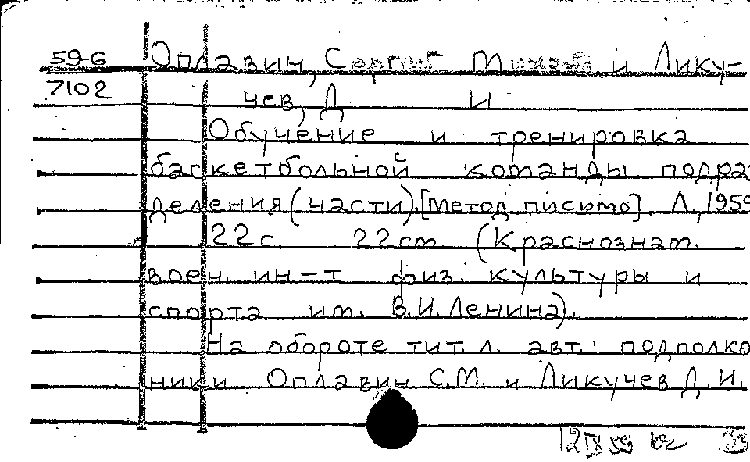 59-6
7102
Оплавин, Сергей Михай и Лику-
чев, Д И
Обучение и тренировка
баскетбольной команды подраз
деления (части). [Метод. письмо]. Л., 1959
22 с. 22 см. (Краснознам.
воен. ин-т физ. культуры и
спорта им. В.И. Ленина).
На обороте тит. л. авт.: подполко
вники Оплавин С.М. и Ликучев Д.И.